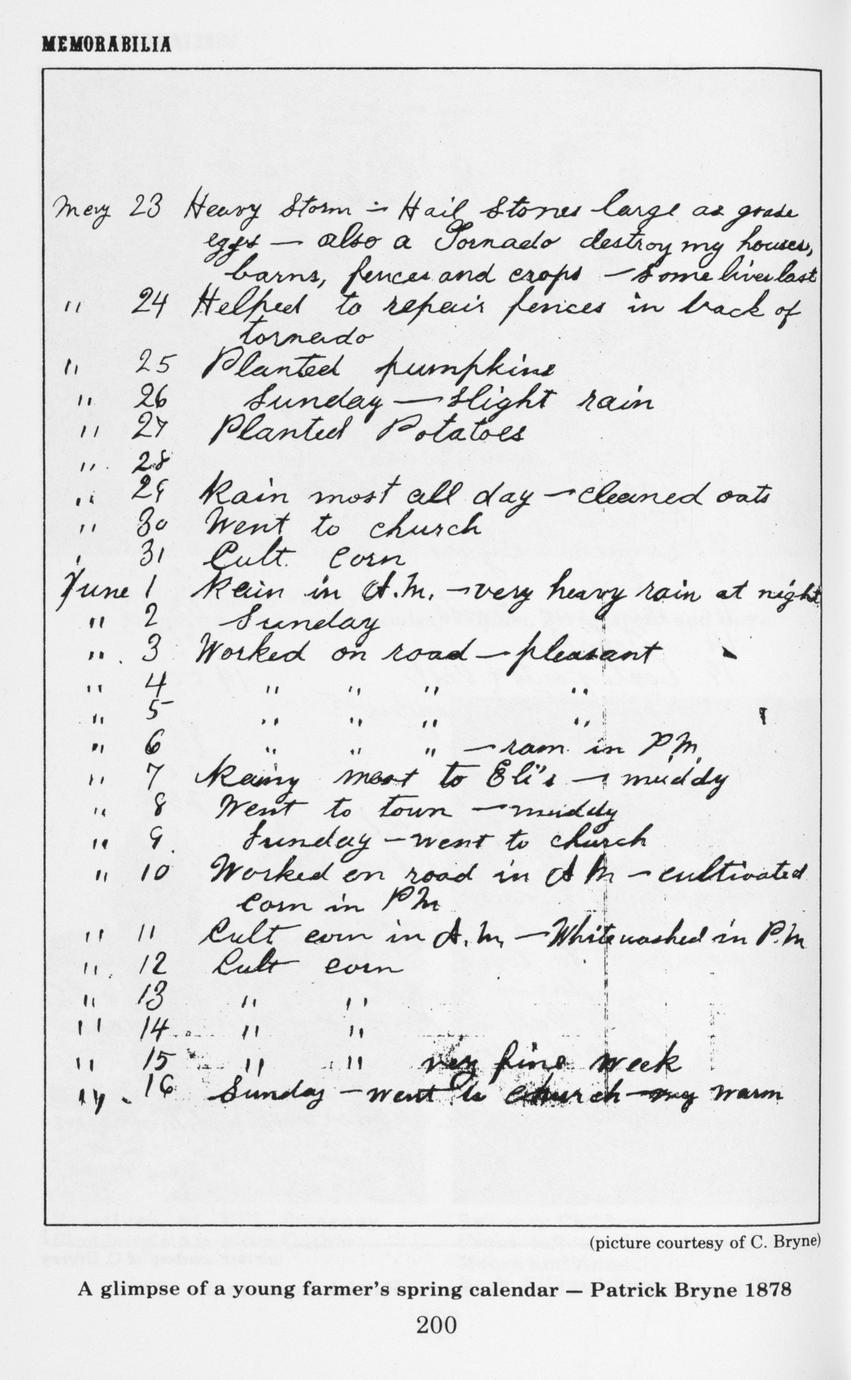 MEMORABILIA
May 23 Heavy Storm - Hail Stones large as goose
eggs — also a Tornado destroy my houses,
barns, fences and crops — Some lives lost
" 24 Helped to repair fences in back of
tornado
" 25 Planted pumpkins
" 26 Sunday — slight rain
" 27 Planted Potatoes
" 28
" 29 Rain most all day — cleaned oats
" 30 Went to church
" 31 Cult. Corn
June 1 Rain in A.M. — very heavy rain at night
" 2 Sunday
" 3 Worked on road — pleasant
" 4 " " " "
" 5 " " " "
" 6 " " " — rain in P.M.
" 7 Rainy went to Eli's — muddy
" 8 Went to town — muddy
" 9 Sunday — went to church
" 10 Worked on road in A M — cultivated
Corn in P M
" 11 Cult corn in A.M. — Whitewashed in P.M
" 12 Cult corn
" 13 " "
" 14 " "
" 15 " " very fine week
" 16 Sunday — went to church — warm
(picture courtesy of C. Bryne)
A glimpse of a young farmer's spring calendar — Patrick Bryne 1878
200